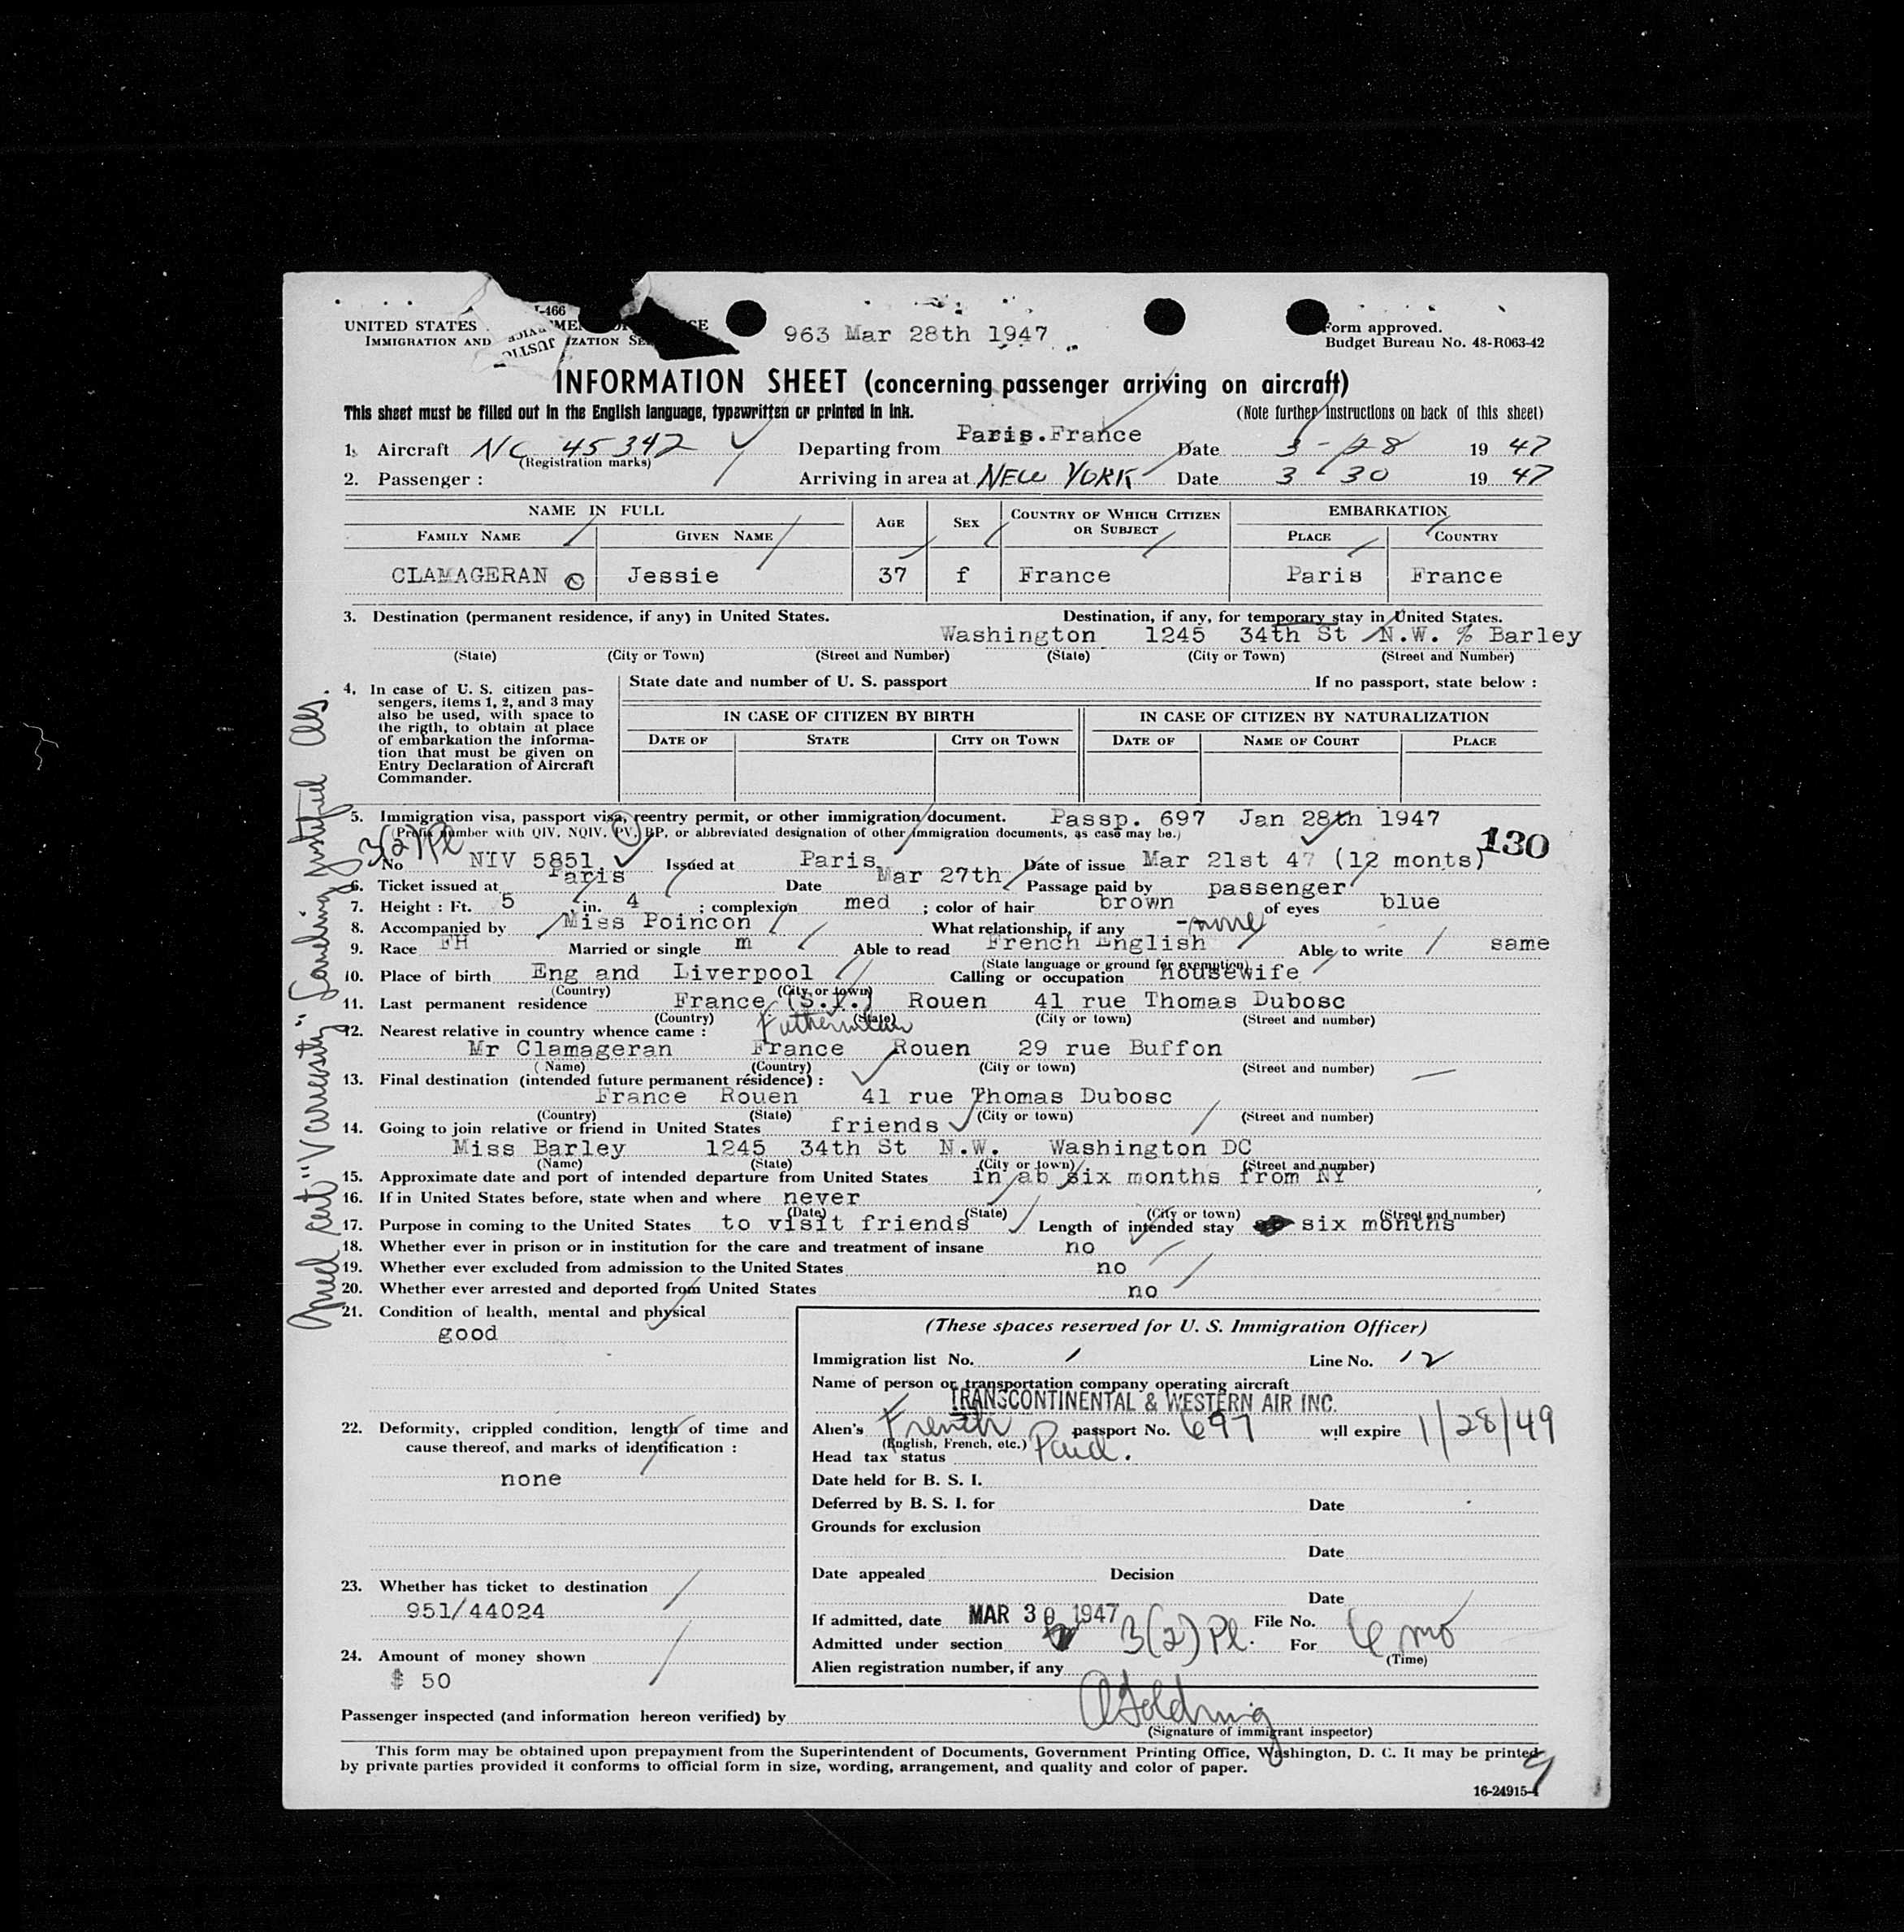 I-466
UNITED STATES
IMMIGRATION AND
JUSTICE
963 Mar 28th 1947
Form approved.
Budget Bureau No. 48-R063-42
INFORMATION SHEET (concerning passenger arriving on aircraft)
This sheet must be filled out in the English language, typewritten or printed in ink. (Note further instructions on back of this sheet)
1. Aircraft NC 45342 Departing from Paris.France Date 3-28 1947
(Registration marks)
2. Passenger : Arriving in area at NEW YORK Date 3-30 1947
NAME IN FULL AGE SEX COUNTRY OF WHICH CITIZEN OR SUBJECT EMBARKATION
FAMILY NAME GIVEN NAME PLACE COUNTRY
CLAMAGERAN Jessie 37 f France Paris France
3. Destination (permanent residence, if any) in United States. Destination, if any, for temporary stay in United States.
Washington 1245 34th St N.W. % Barley
(State) (City or Town) (Street and Number) (State) (City or Town) (Street and Number)
4. In case of U. S. citizen pas-
sengers, items 1, 2, and 3 may
also be used, with space to
the rigth, to obtain at place
of embarkation the informa-
tion that must be given on
Entry Declaration of Aircraft
Commander.
State date and number of U. S. passport If no passport, state below :
IN CASE OF CITIZEN BY BIRTH IN CASE OF CITIZEN BY NATURALIZATION
DATE OF STATE CITY OR TOWN DATE OF NAME OF COURT PLACE
5. Immigration visa, passport visa, reentry permit, or other immigration document. Passp. 697 Jan 28th 1947
(Prefix number with QIV, NQIV, PV, RP, or abbreviated designation of other immigration documents, as case may be.)
130
3(2)Pl
No NIV 5851 Issued at Paris Date of issue Mar 21st 47 (12 monts)
6. Ticket issued at Paris Date Mar 27th Passage paid by passenger
7. Height : Ft. 5 in. 4 ; complexion med ; color of hair brown of eyes blue
8. Accompanied by Miss Poincon What relationship, if any -none
9. Race FH Married or single m Able to read French English Able to write same
(State language or ground for exemption)
10. Place of birth Eng and Liverpool Calling or occupation housewife
(Country) (City or town)
11. Last permanent residence France (S.I.) Rouen 41 rue Thomas Dubosc
(Country) (State) (City or town) (Street and number)
12. Nearest relative in country whence came : Fatherinlaw
Mr Clamageran France Rouen 29 rue Buffon
(Name) (Country) (City or town) (Street and number)
13. Final destination (intended future permanent résidence) :
France Rouen 41 rue Thomas Dubosc
(Country) (State) (City or town) (Street and number)
14. Going to join relative or friend in United States friends
Miss Barley 1245 34th St N.W. Washington DC
(Name) (State) (City or town) (Street and number)
15. Approximate date and port of intended departure from United States in ab six months from NY
16. If in United States before, state when and where never
(Date) (State) (City or town) (Street and number)
17. Purpose in coming to the United States to visit friends Length of intended stay six months
18. Whether ever in prison or in institution for the care and treatment of insane no
19. Whether ever excluded from admission to the United States no
20. Whether ever arrested and deported from United States no
21. Condition of health, mental and physical
good
22. Deformity, crippled condition, length of time and
cause thereof, and marks of identification :
none
23. Whether has ticket to destination
951/44024
24. Amount of money shown
$ 50
(These spaces reserved for U. S. Immigration Officer)
Immigration list No. 1 Line No. 12
Name of person or transportation company operating aircraft
TRANSCONTINENTAL & WESTERN AIR INC.
Alien's French passport No. 697 will expire 1/28/49
(English, French, etc.)
Head tax status Paid.
Date held for B. S. I.
Deferred by B. S. I. for Date
Grounds for exclusion
Date
Date appealed Decision
Date
If admitted, date MAR 30 1947 File No.
Admitted under section 3(2) Pl. For 6 mo
(Time)
Alien registration number, if any
Passenger inspected (and information hereon verified) by
(Signature of immigrant inspector)
This form may be obtained upon prepayment from the Superintendent of Documents, Government Printing Office, Washington, D. C. It may be printed
by private parties provided it conforms to official form in size, wording, arrangement, and quality and color of paper.
9
16-24915-1